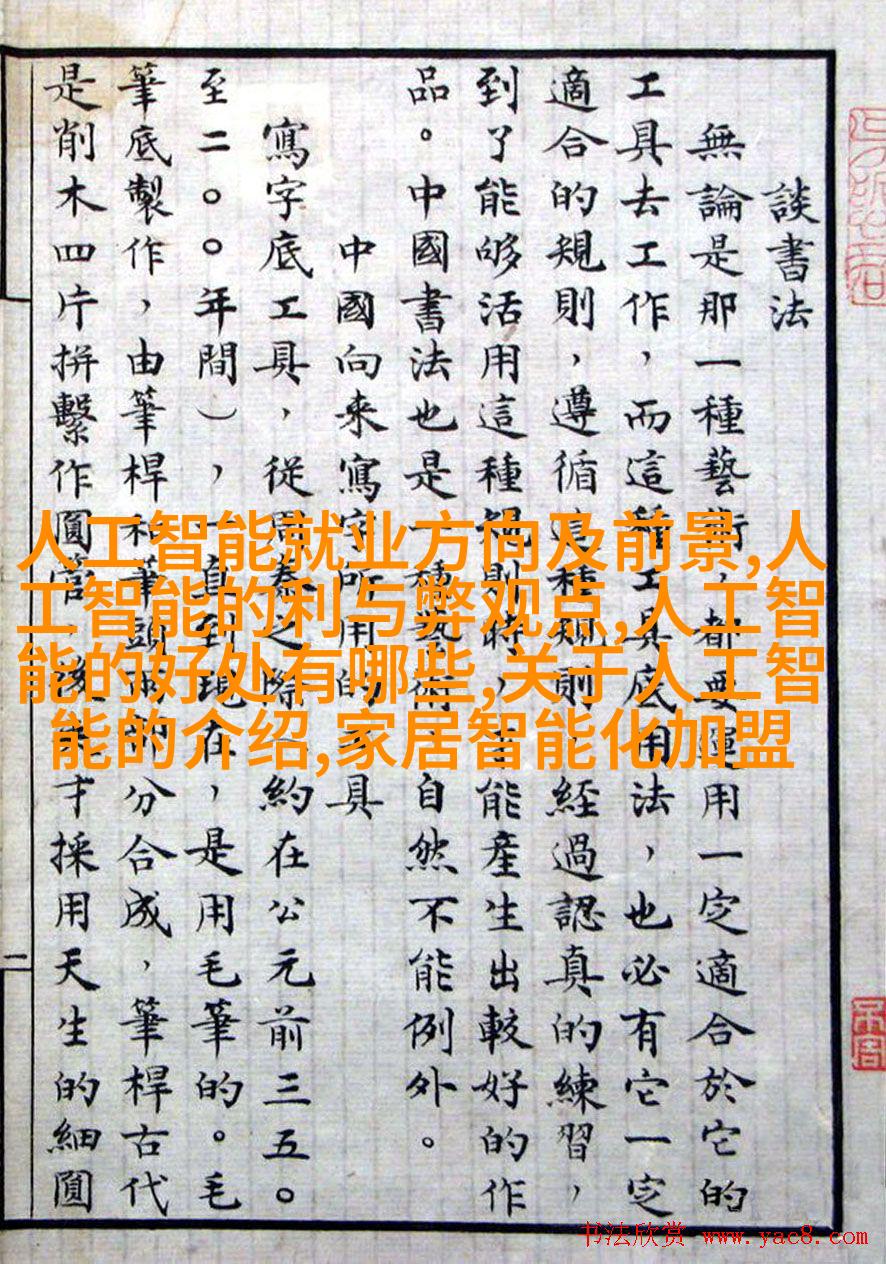 談書法
無論是那一種藝術，都要運用一定適合於它的
工具去工作，而這種工具底用法，也必有它一定
適合的規則，遵循這種規則，經過認真的練習，
到了能够活用這種規則時，才能產生出較好的作
品。中國書法也是一種藝術，自然不能例外。
中國向來寫字所用的工具
寫字底工具，從周秦之際（約在公元前三五〇
至二〇〇年間），一直到現在，是用毛筆的。毛
筆底製作，由筆桿和筆頭兩部分合成，筆桿古代
是削木四片拼繫作圓管，後來才採用天生的細圓
二
人工智能就业方向及前景,人
工智能的利与弊观点,人工智
能的好处有哪些,关于人工智
能的介绍,家居智能化加盟
书法欣赏 www.yac8.com